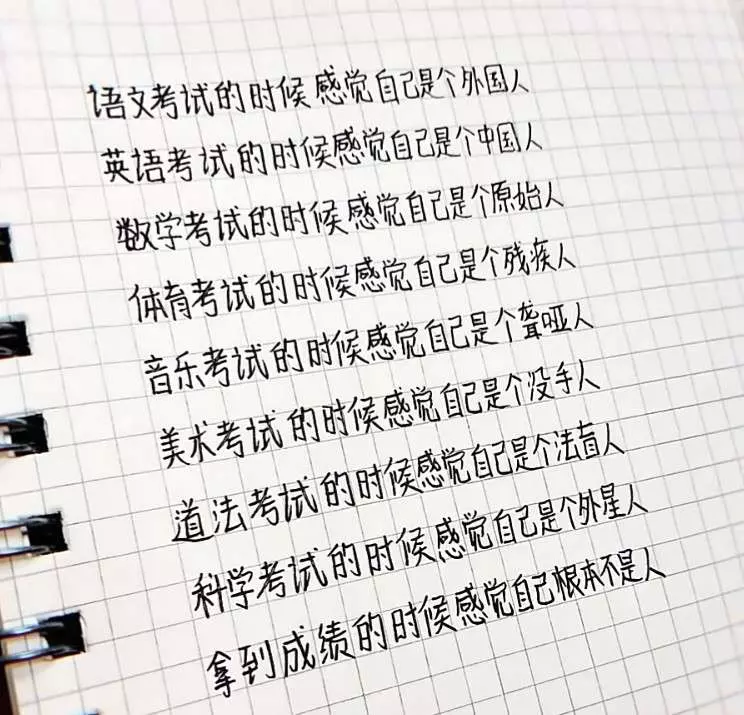 语文考试的时候感觉自己是个外国人
英语考试的时候感觉自己是个中国人
数学考试的时候感觉自己是个原始人
体育考试的时候感觉自己是个残疾人
音乐考试的时候感觉自己是个聋哑人
美术考试的时候感觉自己是个没手人
道法考试的时候感觉自己是个法盲人
科学考试的时候感觉自己是个外星人
拿到成绩的时候感觉自己根本不是人